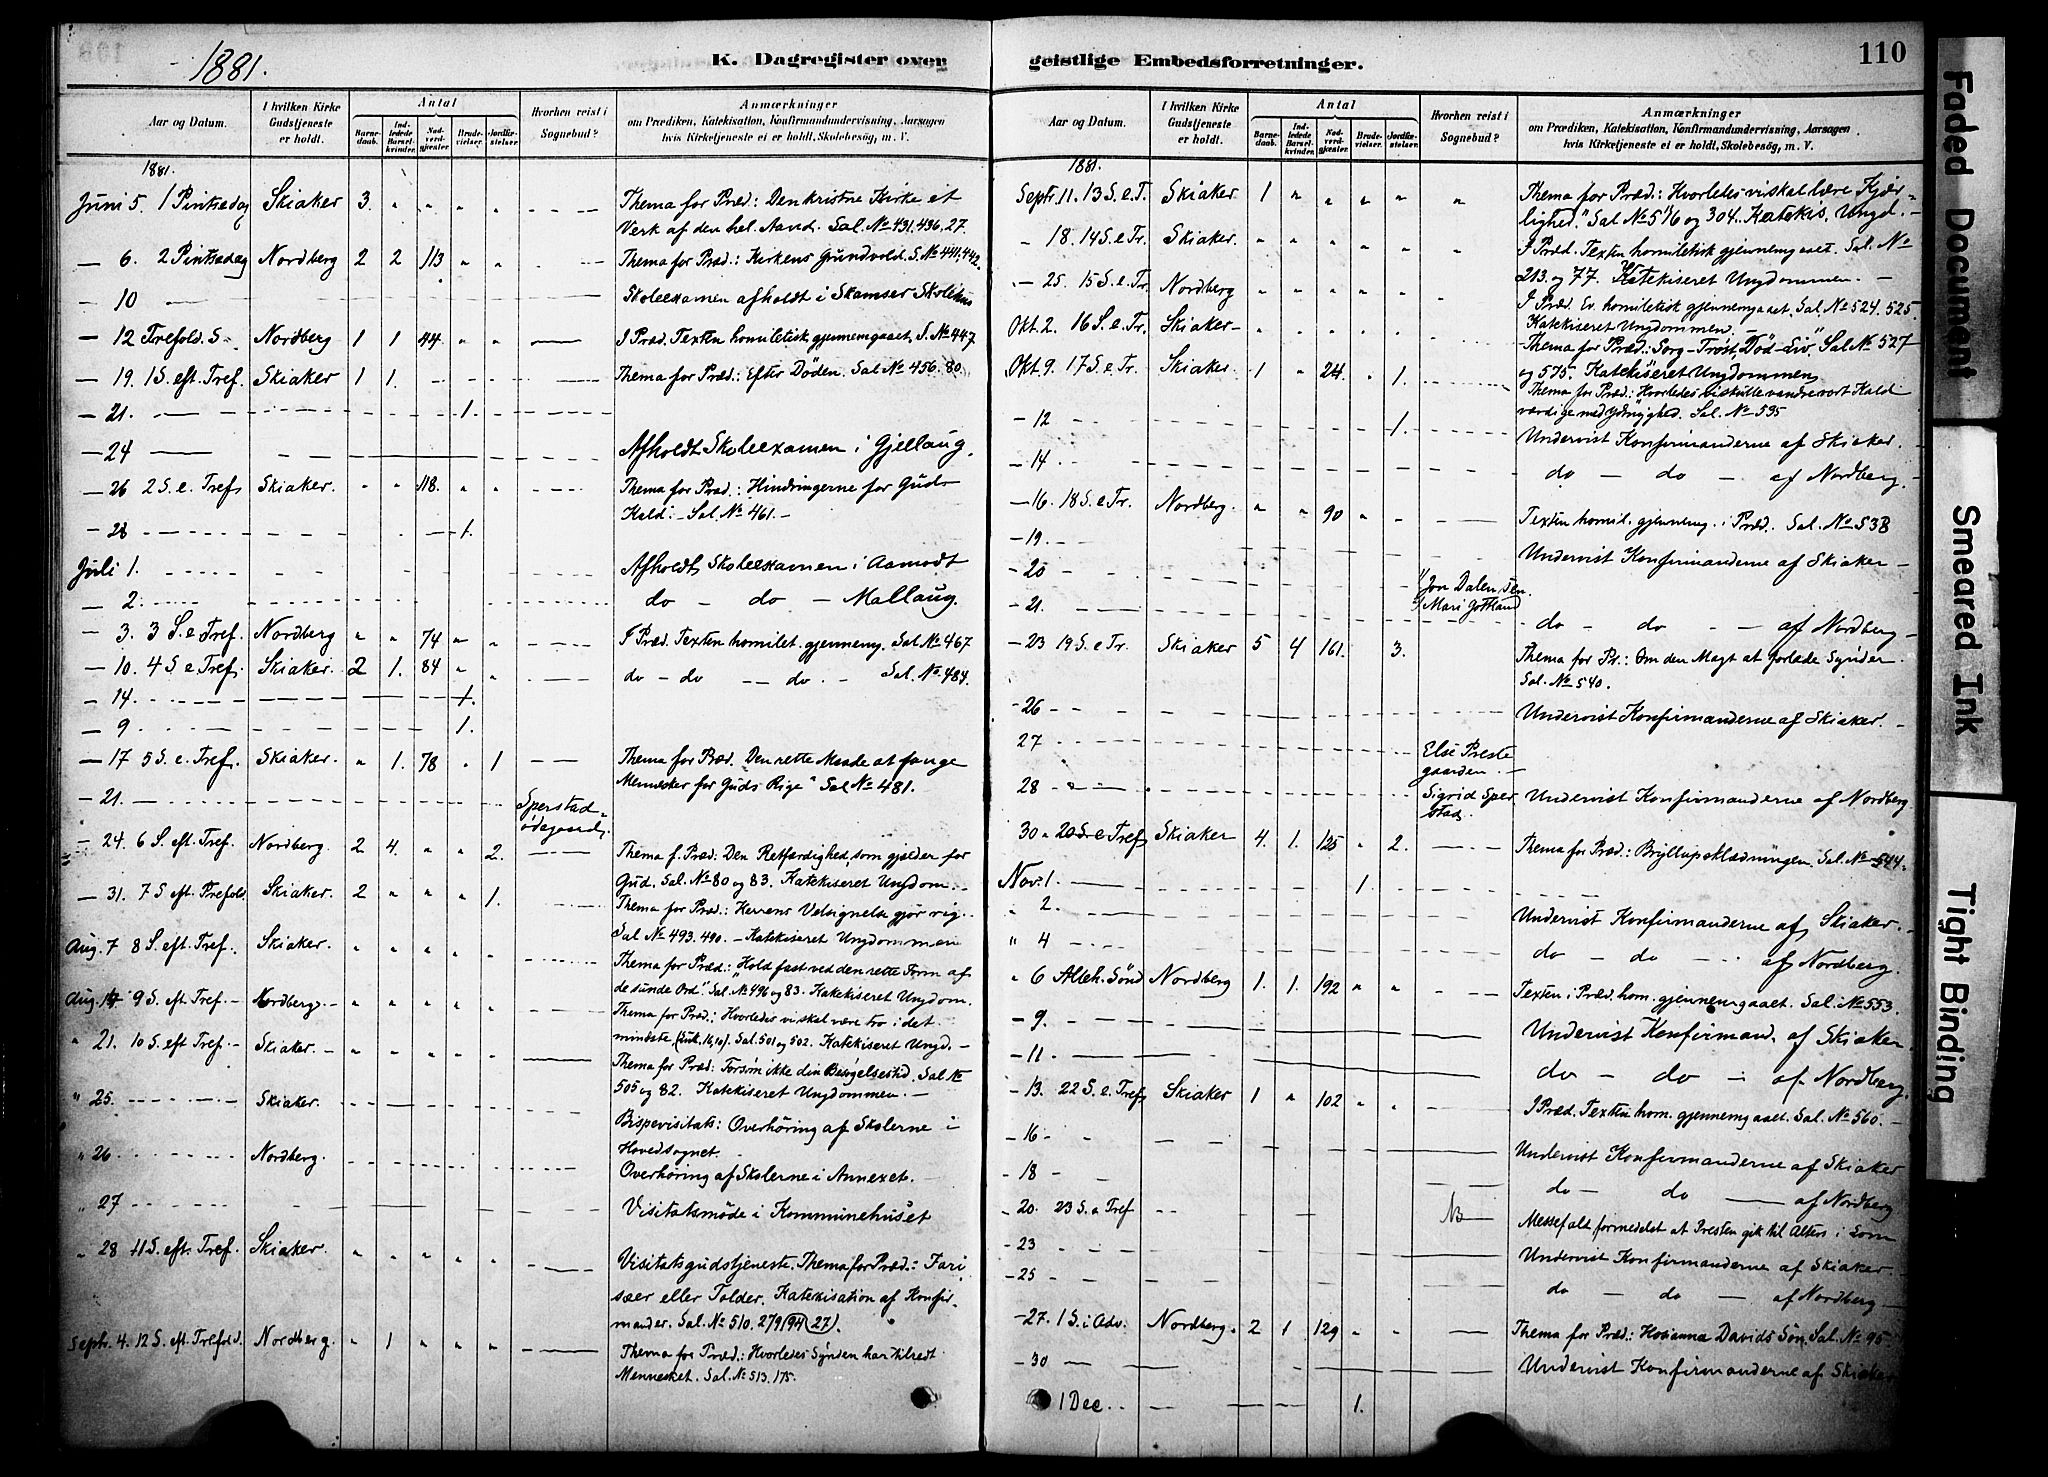 1881.
K. Dagregister over
Aar og Datum.
I hvilken Kirke Gudstjeneste er holdt.
Antal
Barne-daab.
Ind-ledede Barsel-kvinder.
Nad-verd-gjæster.
Brude-vielser.
Jordfæ-stelser.
Hvorhen reist i Sognebud?
Anmærkninger
om Prædiken, Katekisation, Konfirmandundervisning, Aarsagen
hvis Kirketjeneste ei er holdt, Skolebesøg, m. V.
1881.
Juni 5. 1 Pintsedag Skiaker 3. " " " " Thema for Præd: Den kristne Kirke et
Verk af den hel. Aand. Sal. No 431, 436, 27.
— 6. 2 Pintsedag Nordberg 2 2 113 " " Thema for Præd.: Kirkens Grundvold. S. No 441, 442.
— 10 Skoleexamen afholdt i Skamser Skolehus
— 12 Trefold. S. Nordberg 1 1 44. " " I Præd. Texten homiletisk gjennemgaaet, S. No 447
— 19. 1 S. eft. Tref. Skiaker 1 1. Thema for Præd: Efter Døden. Sal No 456. 80.
— 21. 1.
— 24 Afholdt Skoleexamen i Gjellaug.
— 26 2 S. e. Tref. Skiaker. " " 118. " " Thema for Præd.: Hindringerne for Guds
Kald. – Sal. No 461. –
— 28 1.
Juli 1. Afholdt Skoleexamen i Aamodt
— 2. do – do – Mallaug.
— 3. 3 S. e Tref. Nordberg " " 74 " " I Præd. Texten homilet. gjennemg. Sal. No 467
— 10. 4 S e Tref. Skiaker. 2 1. 84 " " do – do –– do. – Sal. No 484.
— 14. 1.
— 9 1.
— 17 5 S. e. Tref. Skiaker. " 1. 78 " 1 Thema for Præd. Den rette Maade at fange
Mennesker for Guds Rige" Sal No 481.
— 21. Sperstad-
ødegaard.
— 24. 6 S. eft. Tref. Nordberg. 2 4. " " 2. Thema f. Præd: Den Retfærdighed, som gjælder for
Gud. Sal. No 80 og 83. Katekiseret Ungdom. –
— 31. 7 S. eft. Trefold. Skiaker. 2 " " " 1. Thema for Præd: Herrens Velsignelse gjør rig.
Sal No 493. 490. – Katekiseret Ungdommen
Aug. 7 8 S. eft. Tref. Skiaker. " " " " " Thema for Præd: "Hold fast ved den rette Form af
de sunde Ord". Sal. No 496 og 83. Katekiseret Ungdom.
Aug. 14 9 S. eft. Tref. – Nordberg. – " " " " " Thema for Præd.: Hvorledes vi skal være tro i det
mindste (Luk. 16, 10). Sal. 501 og 502. Katekiseret Ungd. –
" 21. 10 S. eft Tref. – Skiaker. – " " " " " Thema for Præd: Forsøm ikke din Besøgelsestid. Sal No
505 og 82. Katekiseret Ungdommen. –
" 25. Skiaker. Bispevisitats: Overhøring af Skolerne i
Hovedsognet.
" 26 Nordberg. Overhøring af Skolerne i Annexet.
" 27 Visitatsmøde i Kommunehuset
" 28 11 S. eft. Tref. Skiaker. " " " " " Visitatsgudstjeneste. Thema for Præd.: Fari
sæer eller Tolder. Katekisation af Konfir-
mander. Sal. No 510. 279 (94 (27).
Septr. 4. 12 S. eft. Trefold. Nordberg. " 1 " " " Thema for Præd.: Hvorledes Synden har tilredt
Mennesket. Sal. No 513. 175.
geistlige Embedsforretninger.
110
Aar og Datum.
I hvilken Kirke Gudstjeneste er holdt.
Antal
Barne-daab.
Ind-ledede Barsel-kvinder.
Nad-verd-gjæster.
Brude-vielser.
Jordfæ-stelser.
Hvorhen reist i Sognebud?
Anmærkninger
om Prædiken, Katekisation, Konfirmandundervisning, Aarsagen
hvis Kirketjeneste ei er holdt, Skolebesøg, m. V.
1881.
Septr. 11. 13 S. e. T. Skiaker 1 " " " " " Thema for Præd.: Hvorledes vi skal lære Kjær-
lighed." Sal No 516 og 304. Katekis. Ungd. –
" 18. 14 S. e Tr. Skiaker. " " " " " " I Præd. Texten homiletisk gjennemgaaet. Sal. No
213 og 77. Katekiseret Ungdommen. –
– 25. 15 S. e Tr. Nordberg " " " " " " I Præd. Ev. homiletisk gjennemgaaet. Sal. No 524. 525.
Katekiseret Ungdommen. –
Okt. 2. 16 S. e Tr. Skiaker – " " " " " Thema for Præd: Sorg – Trøst, Død – Liv". Sal No 527
og 575. Katekiseret Ungdommen
Okt. 9. 17 S. e Tr. Skiaker. 1 " 24. " 1. Thema for Præd: Hvorledes vi skulle vandre vort Kald
værdige med Ydmyghed. Sal. No 535
– 12 1. Undervist Konfirmanderne af Skiaker.
– 14. do – do – af Nordberg.
– 16. 18 S. e Tr. Nordberg. " " 90 " " Texten homil. gjennemg. i Præd. Sal. No 538
– 19. Undervist Konfirmanderne af Skiaker –
– 20 Jon Dalen, den.
Mari
– 21. do – do – af Nordberg –
– 23 19 S. e Tr. Skiaker 5 4 161. 3. Thema for Pr.: Om den Magt at forlade Synder.
Sal. No 540.
– 26 Undervist Konfirmanderne af Skiaker. –
27 Else Preste
gaarden. –
28 Sigrid Sper
stad. Undervist Konfirmanderne af Nordberg
30 " 20 S. e Tref Skiaker 4. 1. 125 " 2. Thema for Præd: Bryllupsklædningen. Sal. No 544.
Nov. 1. 1.
" 2. Undervist Konfirmanderne af Skiaker. –
" 4 do – do – af Nordberg.
" 6 Alleh. Sønd Nordberg 1. 1. 192 " " Texten i Præd. hom. gjennemgaaet. Sal. No 553.
– 9. Undervist Konfirmand. af Skiaker.
– 11 do – do – af Nordberg.
– 13. 22 S. e. Tref Skiaker 1 " 102 " " I Præd. Texten hom. gjennemgaaet. Sal. No 560. –
– 16 – Undervist Konfirmanderne af Skiaker
– 18 do – do – af Nordberg
– 20. 23 S. e Tref Messefald formedelst at Presten gik til Alters i Lom
– 23 Undervist Konfirmanderne af Skiaker –
– 25 do – do – af Nordberg –
– 27. 1 S. i Adv. Nordberg. 2 1 129 " " Thema for Præd: Hosianna Davids Søn. Sal. No 95
– 30 Undervist Konfirmanderne af Skiaker
1 Dec. 1.
Faded Document
Smeared Ink
Tight Binding